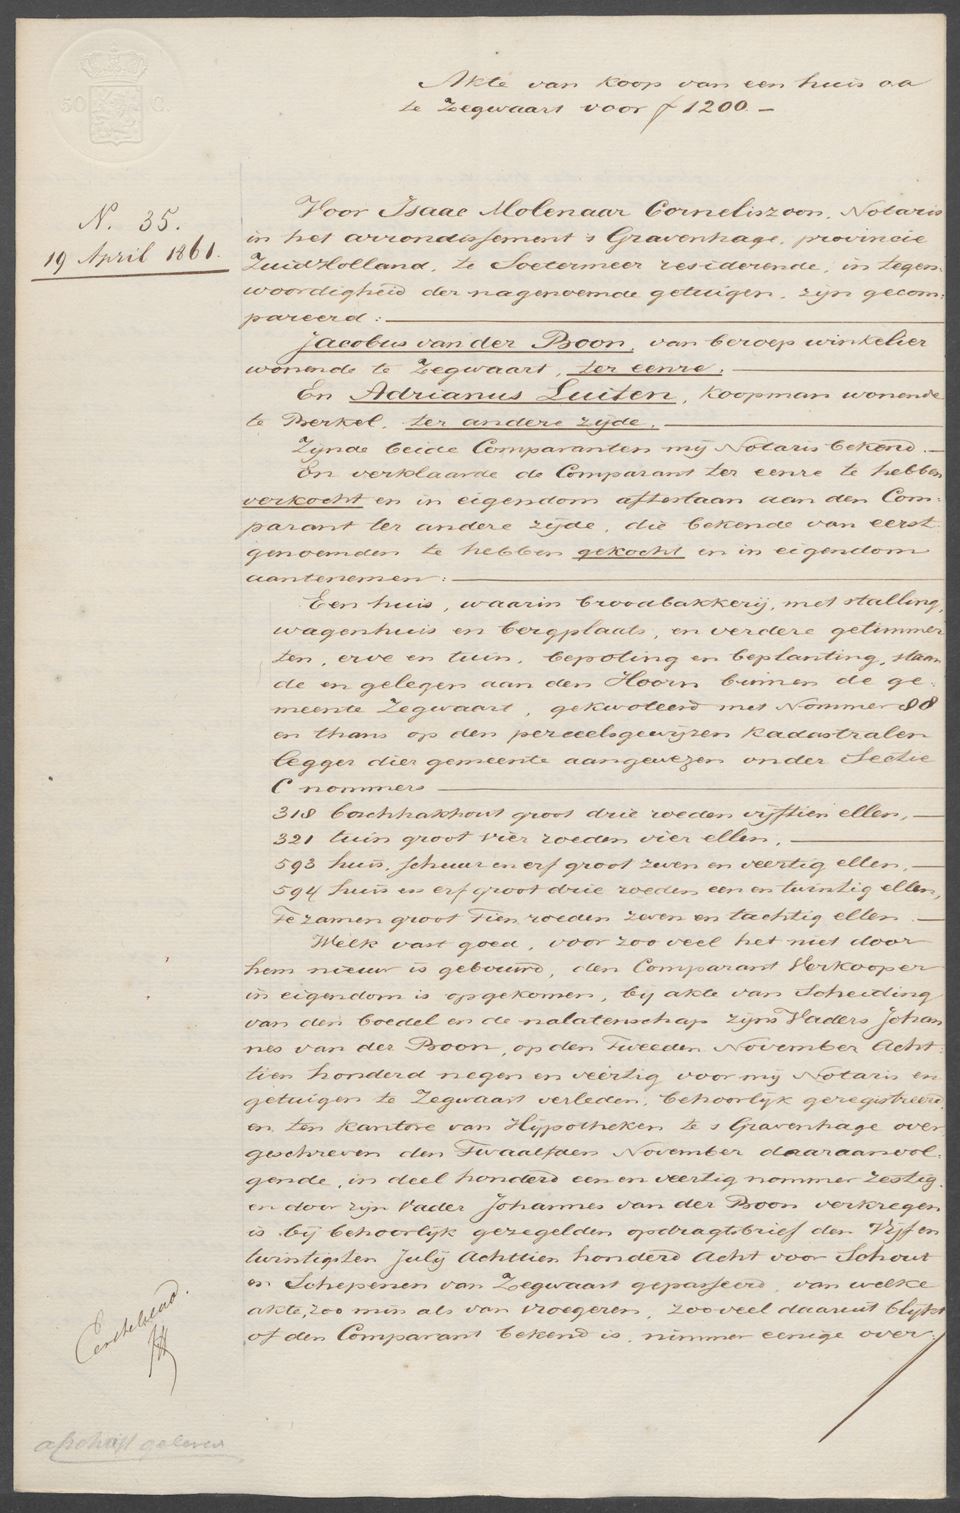 50 C.
Akte van koop van een huis aa
te Zegwaart voor ƒ 1200.—
N. 35.
19 April 1861.
Voor Isaac Molenaar Corneliszoon, Notaris
in het arrondissement 's Gravenhage, provincie
Zuid Holland, te Soetermeer residerende, in tegen-
woordigheid der nagenoemde getuigen, zijn gecom-
pareerd:
Jacobus van der Boon, van beroep winkelier
wonende te Zegwaart, ter eenre,
En Adrianus Luiten, koopman wonende
te Berkel, ter andere zijde.
Zijnde beide Comparanten mij Notaris bekend.
En verklaarde de Comparant ter eenre te hebben
verkocht en in eigendom aftestaan aan den Com-
parant ter andere zijde, die bekende van eerst-
genoemden te hebben gekocht en in eigendom
aantenemen:
Een huis, waarin broodbakkerij, met stalling,
wagenhuis en bergplaats, en verdere getimmer
ten, erve en tuin, bepoting en beplanting, staan
de en gelegen aan den Hoorn binnen de ge-
meente Zegwaart, gekwoteerd met Nommer 88
en thans op den perceelsgewijzen kadastralen
legger dier gemeente aangewezen onder Sectie
C nommers
318 boschhakhout groot drie roeden vijftien ellen,
321 tuin groot vier roeden vier ellen,
593 huis, schuur en erf groot zeven en veertig ellen,
594 huis en erf groot drie roeden een en twintig ellen,
Te zamen groot Tien roeden zeven en tachtig ellen.
Welk vast goed, voor zoo veel het niet door
hem nieuw is gebouwd, den Comparant Verkooper
in eigendom is opgekomen, bij akte van Scheiding
van den boedel en de nalatenschap zijns Vaders Johan
nes van der Boon, op den Tweeden November Acht-
tien honderd negen en veertig voor mij Notaris en
getuigen te Zegwaart verleden, behoorlijk geregistreerd,
en ten kantore van Hypotheken te s Gravenhage over-
geschreven den Twaalfden November daaraanvol-
gende, in deel honderd een en veertig nommer zestig,
en door zijn Vader Johannes van der Boon verkregen
is bij behoorlijk gezegelden opdragtsbrief den Vijf en
twintigsten Julij Achttien honderd Acht voor Schout
en Schepenen van Zegwaart gepasseerd, van welke
akte, zoo min als van vroegeren, zoo veel daaruit blijkt
of den Comparant bekend is, nimmer eenige over-
Eerste blad.
afschrift gelever